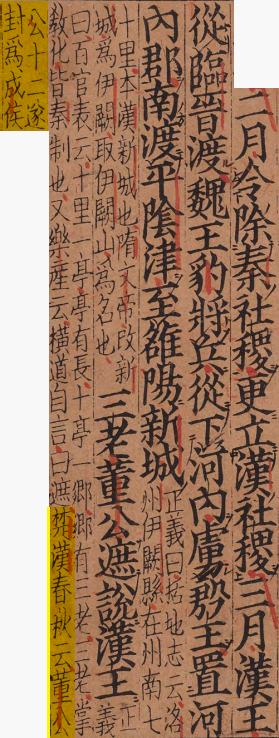 二月令除秦社稷更立漢社稷三月漢王
從臨晉渡魏王豹將兵從下河內虜殷王置河
內郡南渡平陰津至雒陽新城正義曰括地志云洛
州伊闕縣在州南七
十里本漢新城也隋文帝改新
城爲伊闕取伊闕山爲名也三老董公遮說漢王正
義
曰百官表云十里一亭亭有長十亭一鄉鄉有三老三老掌
敎化皆秦制也又樂産云橫道自言曰遮楚漢春秋云董公
八十二遂
封爲成侯